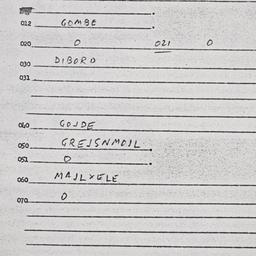 012 GOMBE
020 0 021 0
030 DIBORO
031
040 GOJDE
050 GREJSNMOJL
051 0
060 MAJLXELE
070 0